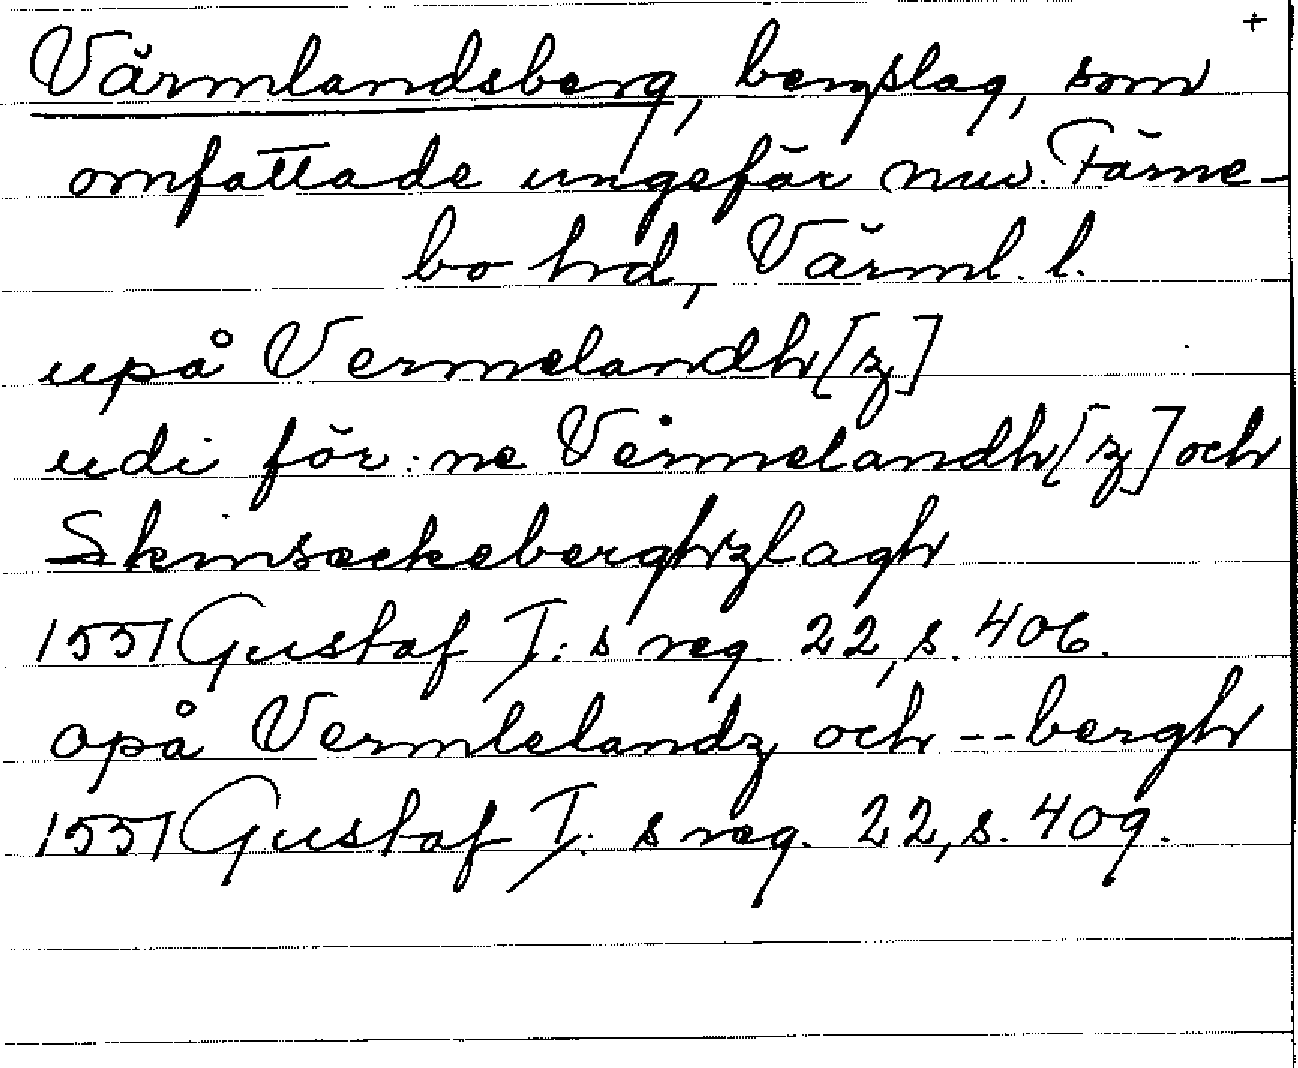 +
Värmlandsberg, bergslag, som
omfattade ungefär nuv. Färne-
bo hd, Värml. l.
upå Vermelandh[z]
udi för:ne Vermelandh[z] och
Skinseckeberghzlagh
1551 Gustaf I:s reg. 22, s. 406.
opå Vermlelandz och -- bergh
1551 Gustaf I:s reg. 22, s. 409.